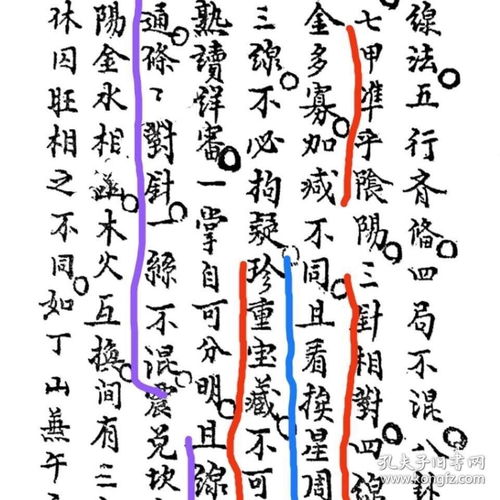 線法五行齊俻四局不混八卦
七甲準乎陰陽三針相對四線
金多寡加减不同且看挨星周
三線不必拘疑珍重宝藏不可
熟讀詳審一掌自可分明且線
通條〻對針一絲不混震兌坎
陽金水相逆木火互換間有三
休囚旺相之不同如丁山蕪午
孔夫子旧书网